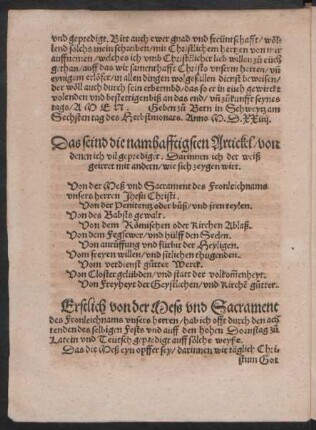 vnd gepredigt. Bitt auch ewer gnad vnd freüntschafft / wöl⸗
lend solchs mein schreiben / mit Christlichem hertzen von mir
auffnemen / welches ich vmb Christlicher lieb willen zů euch
gethan / auff das wir samenthafft Christo vnserm herren / vñ
eynigem erlöser / in allen dingen wolgefallen dienst beweisen /
der wöll auch durch sein erbermbd / das so er in euch gewirckt
volenden vnd bestettigen biß an das end / vñ zůkunfft seynes
tags / A M E N. Geben zů Bern in Schweytz am
Sechsten tag des Herbstmonats. Anno M. D. XXiiij.
Das seind die namhafftigsten Artickl / von
denen ich vil geprediget. Darinnen ich der weiß
geirret mit andern / wie sich zeygen wirt.
Von der Meß vnd Sacrament des Fronleichnams
vnsers herren Jhesu Christi.
Von der Penitentz oder bůß / vnd jren teylen.
Von des Babsts gewalt.
Von dem Römischen oder Kirchen Ablaß.
Von dem Fegfewer / vnd hülff den Seelen.
Von anrüffung vnd fürbit der Heyligen.
Vom freyen willen / vnd sitlichen thugenden.
Vom verdienst gůtter Werck.
Von Closter gelübden / vnd statt der volkom̃enheyt.
Von Freyheyt der Geystlichen / vnd Kirchẽ gůtter.
Erstlich von der Meß vnd Sacrament
des Fronleichnams vnsers herren / hab ich offt durch den ach
tenden des selbigen Fests vnd auff den hohen Dornstag zů
Latein vnd Teutsch geprediget auff sölche weyße.
Das die Meß eyn opffer sey / darinnen wir täglich Chri⸗
stum Got